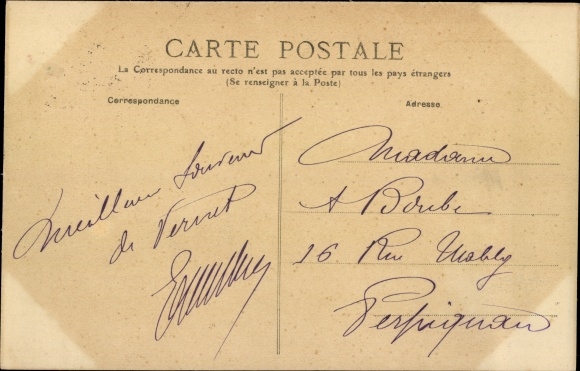 CARTE POSTALE
La Correspondance au recto n'est pas acceptée par tous les pays étrangers
(Se renseigner à la Poste)
Correspondance
Adresse
Meilleur Souvenir
de Vernet
Madame
A Boube
16 Rue Mably
Perpignan